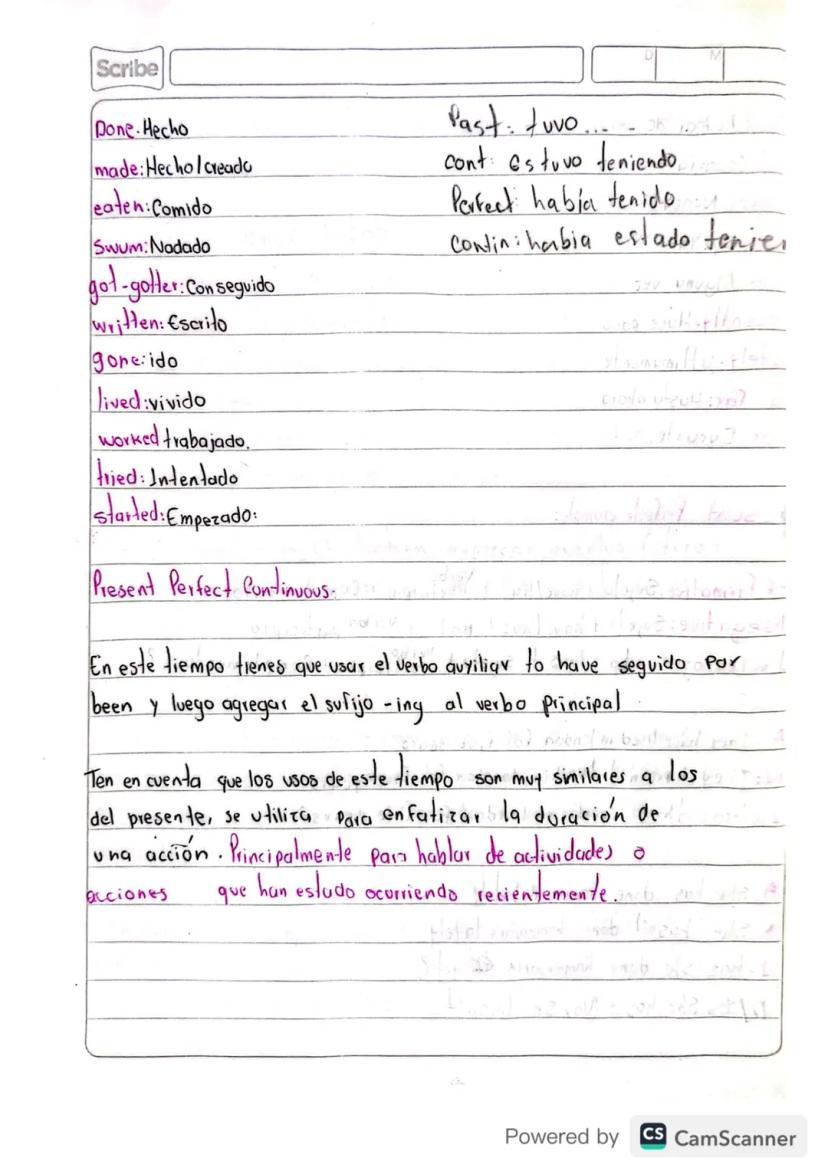 Scribe
D M
Done. Hecho
made: Hecho/creado
eaten: Comido
Swum: Nadado
got-gotten: Conseguido
written: Escrito
gone: ido
lived: vivido
worked trabajado.
tried: Intentado
started: Empezado:
Past: tuvo....
Cont: Estuvo teniendo
Perfect: había tenido
Contin: habia estado tenien
Present Perfect Continuous.
En este tiempo tienes que usar el verbo auxiliar to have seguido por
been y luego agregar el sufijo -ing al verbo principal
Ten en cuenta que los usos de este tiempo son muy similares a los
del presente, se utiliza para enfatizar la duración de
una acción. Principalmente para hablar de actividades o
acciones que han estado ocurriendo recientemente.
Powered by CS CamScanner